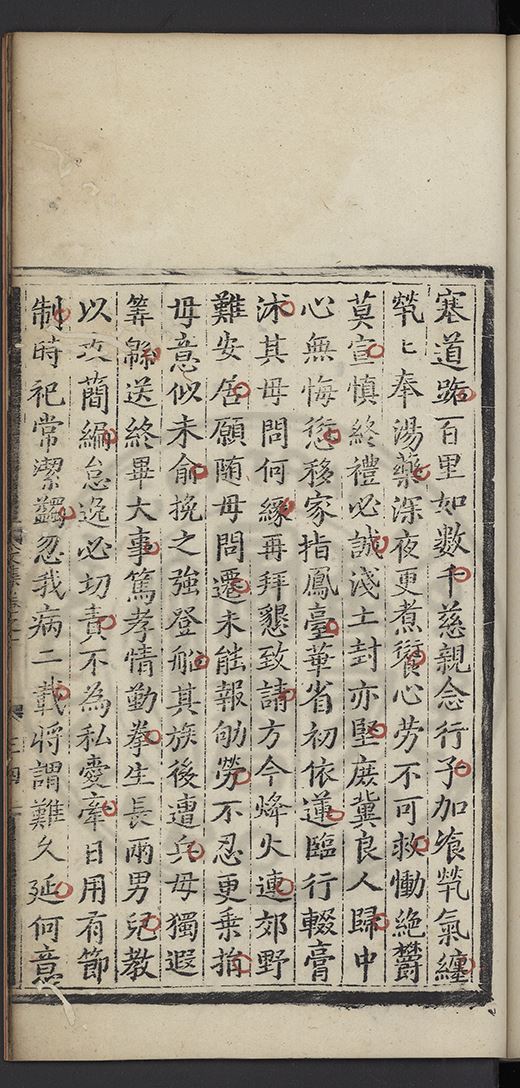 塞道路百里如數千慈親念行子加飡煢氣纏
煢〻奉湯藥深夜更煮饡心劳不可救慟絶欝
莫宣慎終禮必誠淺土封亦堅庶冀良人歸中
心無悔愆移家指鳳臺華省初依蓮臨行輟膏
沐其母問何緣再拜懇致請方今烽火連郊野
難安居願随母問遷未能報劬勞不忍更乗指
母意似未俞挽之強登船其族後遭兵母獨遐
筭緜送終畢大事篤孝情勤拳生長兩男兒教
以攻蕳編怠逸必切責不為私愛牽日用有節
制時祀常潔蠲忽我病二載將謂難久延何意